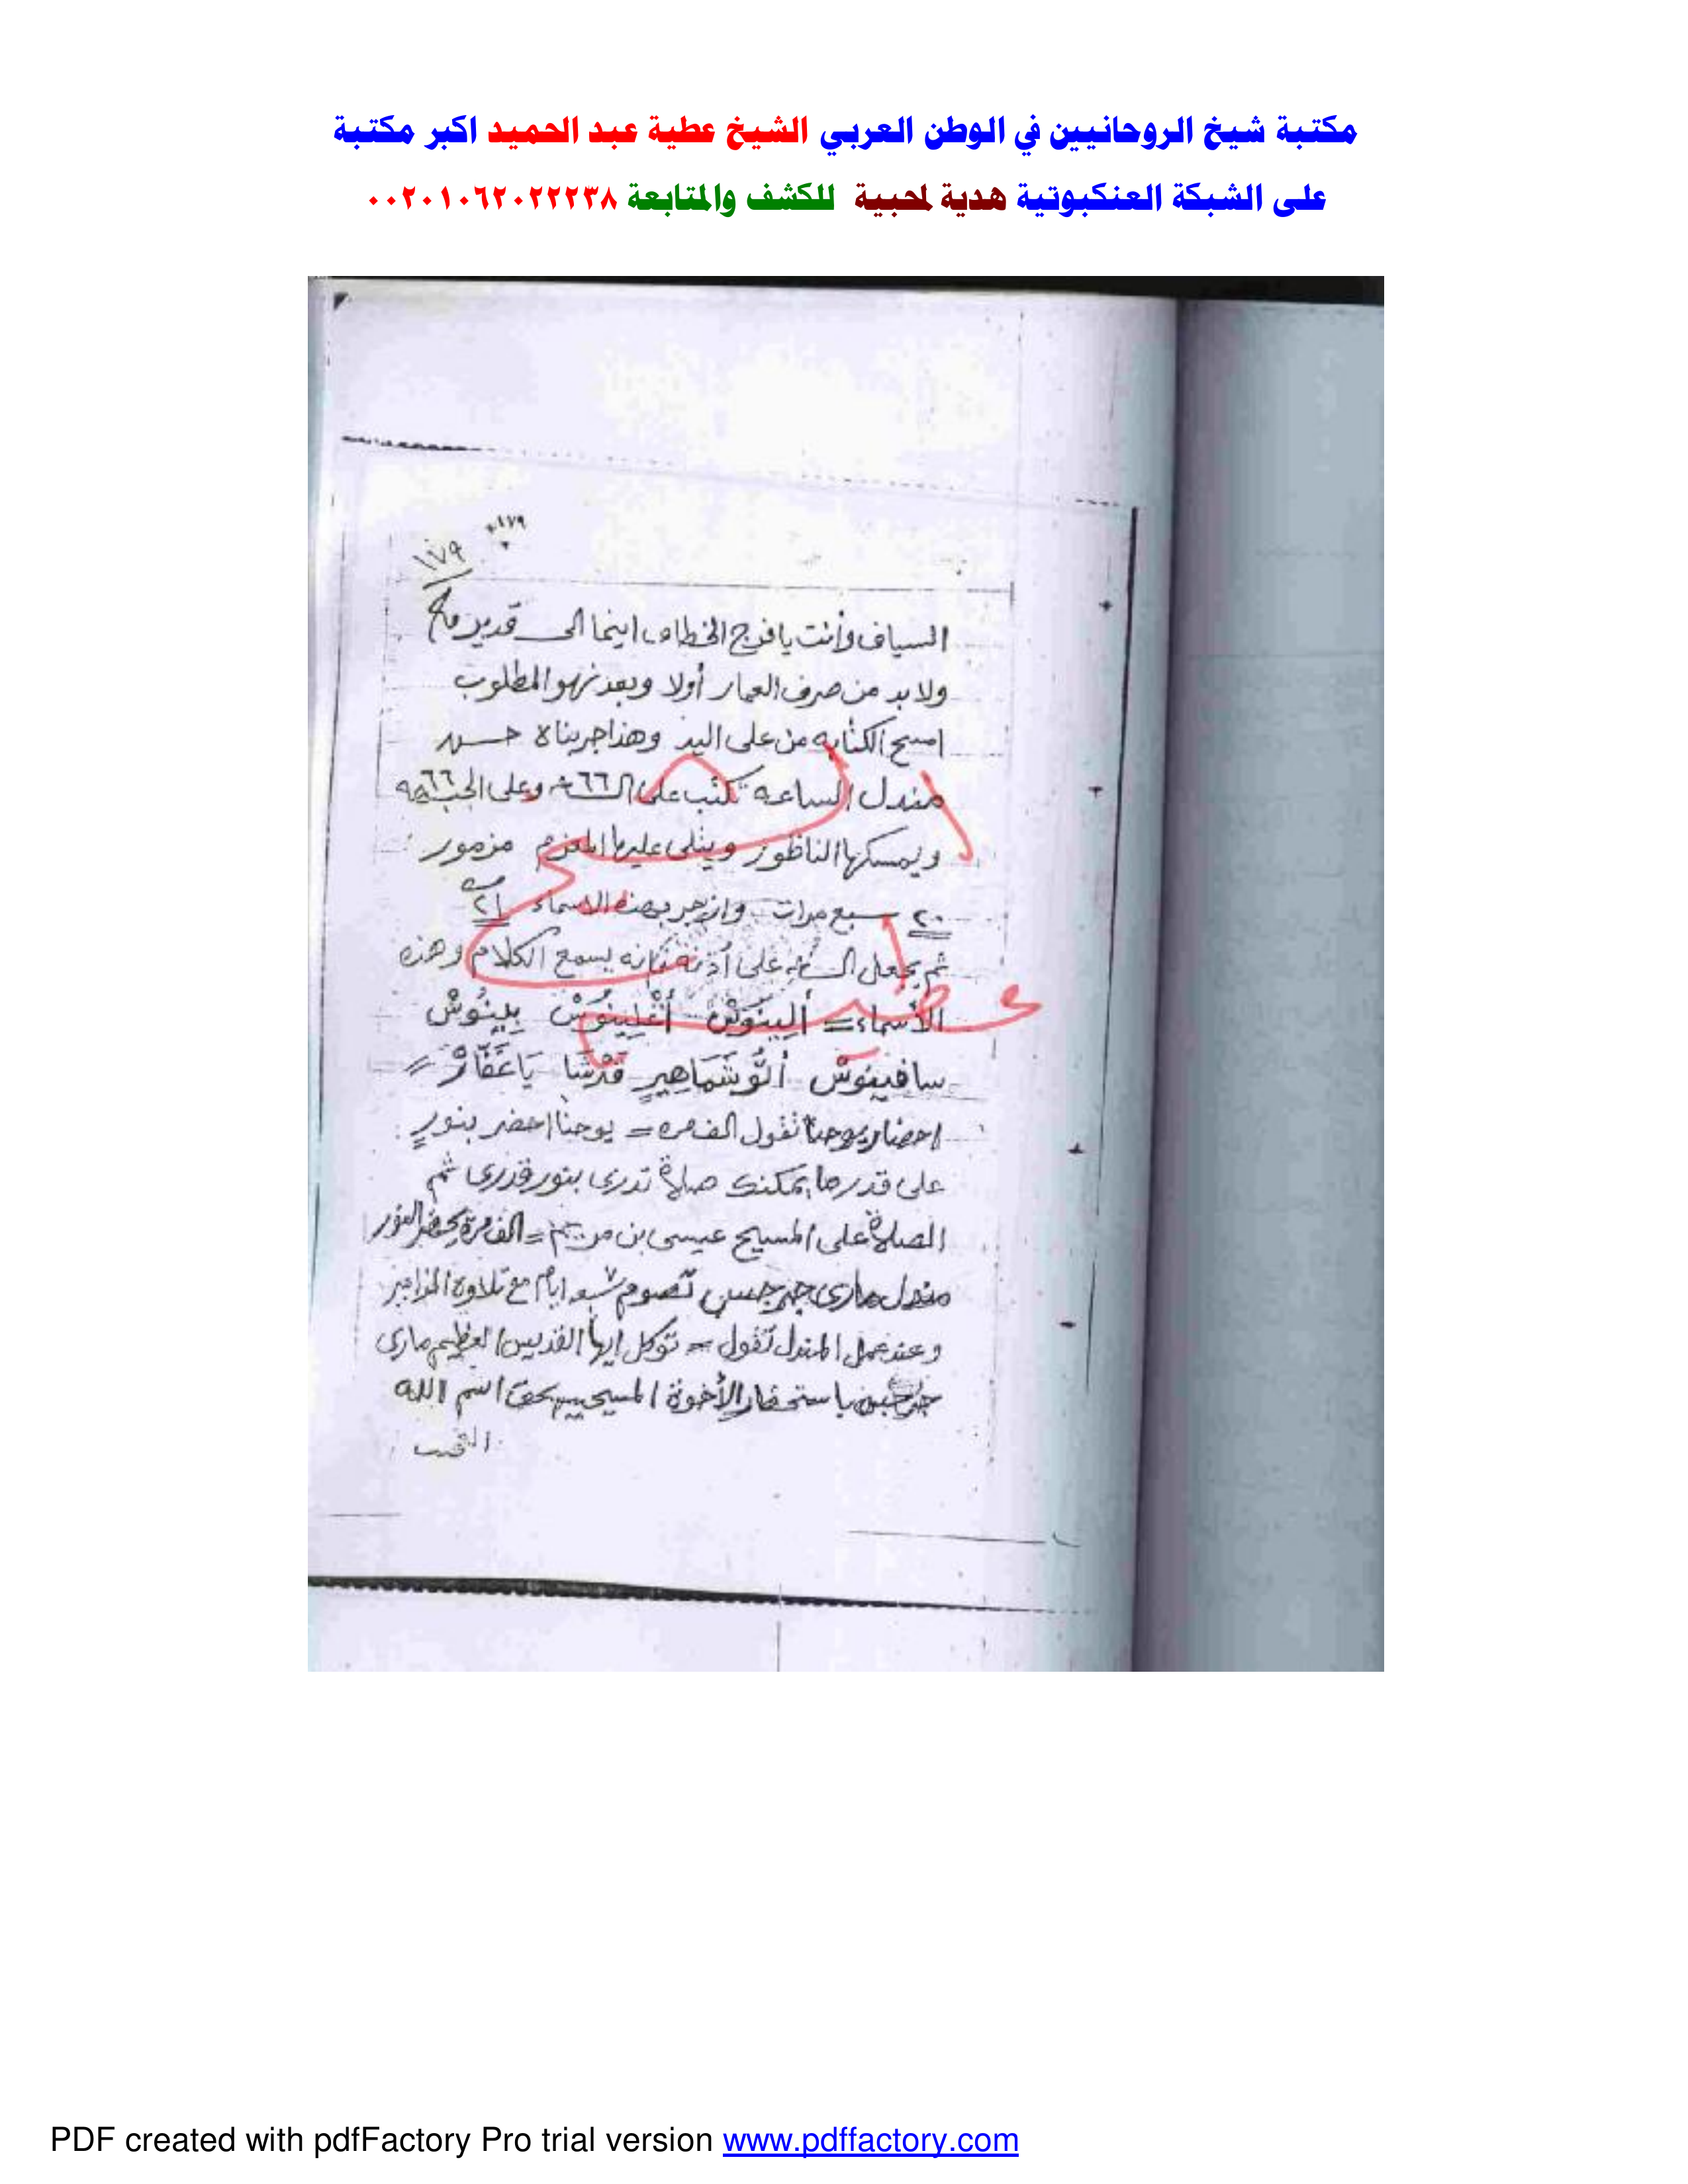 مكتبة شيخ الروحانيين في الوطن العربي الشيخ عطية عبد الحميد اكبر مكتبة
على الشبكة العنكبوتية هدية لمحبية للكشف والمتابعة ٠٠٢٠١٠٦٢٠٢٢٢٣٨
١٧٩
١٧٩
السياف وأنت يا فرج الخطاف اينما الى قدير
ولا بد من صرف العمار أولا وبعد المطلوب
امسح الكتابه من على اليد وهذا جربناه
مندل الساعه تكتب على ٦٦ وعلى الجبهه ٦٦
ويمسكها الناظور ويتلى عليها المعزم مزمور
٢٠ سبع مرات وازجر بهذه الاسماء ٢١
ثم يجعل على أذنه فانه يسمع الكلام وهذه
الأسماء = ألينوش أغلينوش بلينوش
سافينوش أنوشماهير قدشا يا غفار =
احضار يوحنا تقول الف مره = يوحنا احضر بنور
على قدر ما يمكنك صلاة تدرى بنور قدرى ثم
الصلاة على المسيح عيسى بن مريم = الف مرة يحضر النور
مندل مارى جرجس تصوم ٧ ايام مع تلاوة المزامير
وعند عمل المندل تقول = توكل ايها القديس العظيم مارى
جرجس باستحضار الأخوة المسيحيين بحق اسم الله
PDF created with pdfFactory Pro trial version www.pdffactory.com